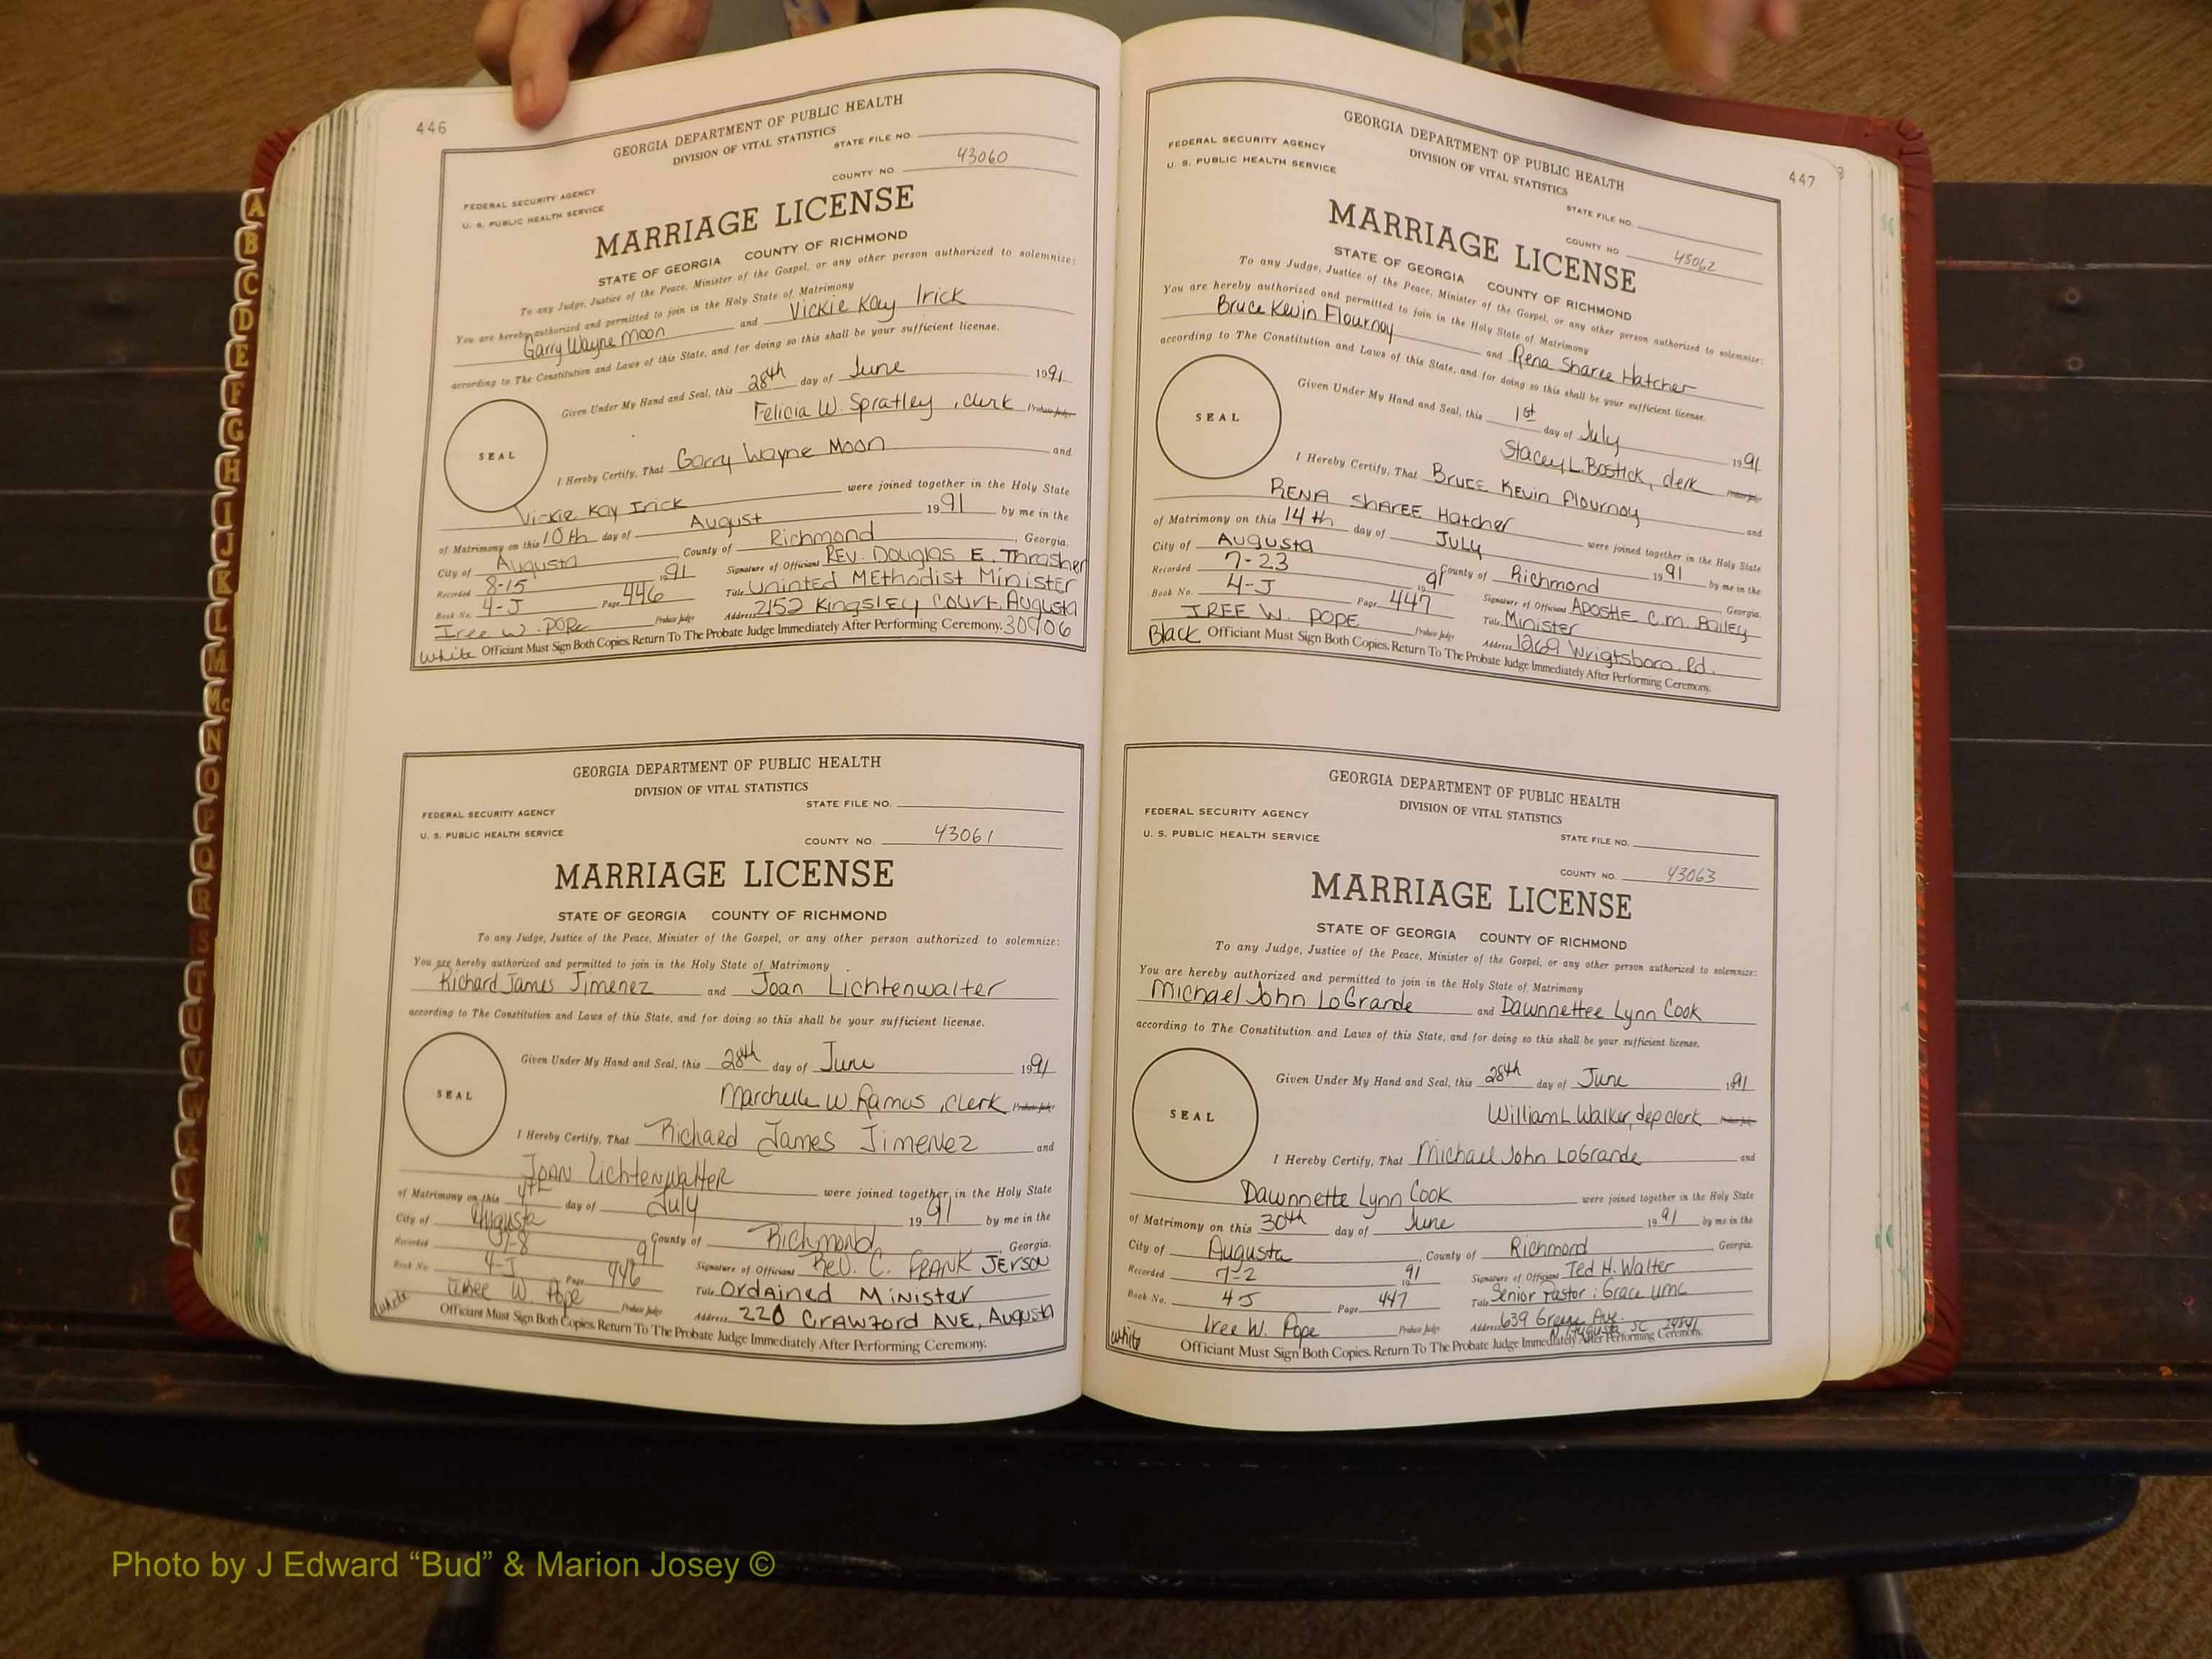 446
GEORGIA DEPARTMENT OF PUBLIC HEALTH
DIVISION OF VITAL STATISTICS
STATE FILE NO.
COUNTY NO. 43060
FEDERAL SECURITY AGENCY
U. S. PUBLIC HEALTH SERVICE
MARRIAGE LICENSE
STATE OF GEORGIA COUNTY OF RICHMOND
To any Judge, Justice of the Peace, Minister of the Gospel, or any other person authorized to solemnize:
You are hereby authorized and permitted to join in the Holy State of Matrimony
Garry Wayne Moon and Vickie Kay Irick
according to The Constitution and Laws of this State, and for doing so this shall be your sufficient license.
Given Under My Hand and Seal, this 28th day of June 1991
Felicia W. Spratley, clerk Probate Judge
SEAL
I Hereby Certify, That Garry Wayne Moon and
Vickie Kay Irick were joined together in the Holy State
of Matrimony on this 10th day of August 1991 by me in the
City of Augusta County of Richmond, Georgia.
Recorded 8-15 1991 Signature of Officiant REV. Douglas E. Thrasher
Book No. 4-J Page 446 Title Uninted MEthodist Minister
Iree W. POPE Probate Judge Address 2152 KingslEy Court, Augusta
White Officiant Must Sign Both Copies. Return To The Probate Judge Immediately After Performing Ceremony. 30906
GEORGIA DEPARTMENT OF PUBLIC HEALTH
DIVISION OF VITAL STATISTICS
FEDERAL SECURITY AGENCY STATE FILE NO.
U. S. PUBLIC HEALTH SERVICE COUNTY NO. 43061
MARRIAGE LICENSE
STATE OF GEORGIA COUNTY OF RICHMOND
To any Judge, Justice of the Peace, Minister of the Gospel, or any other person authorized to solemnize:
You are hereby authorized and permitted to join in the Holy State of Matrimony
Richard James Jimenez and Joan Lichtenwalter
according to The Constitution and Laws of this State, and for doing so this shall be your sufficient license.
Given Under My Hand and Seal, this 28th day of June 1991
Marchelle W. Ramos, Clerk Probate Judge
SEAL
I Hereby Certify, That Richard James Jimenez and
Joan Lichtenwalter were joined together in the Holy State
of Matrimony on this 4th day of July 1991 by me in the
City of Augusta County of Richmond, Georgia.
Recorded 7-8 91 Signature of Officiant Rev. C. FRANK JERSON
Book No. 4-J Page 446 Title Ordained Minister
Iree W. Pope Probate Judge Address 220 Crawford AVE, Augusta
White Officiant Must Sign Both Copies. Return To The Probate Judge Immediately After Performing Ceremony.
447
GEORGIA DEPARTMENT OF PUBLIC HEALTH
DIVISION OF VITAL STATISTICS
FEDERAL SECURITY AGENCY
U. S. PUBLIC HEALTH SERVICE
STATE FILE NO.
COUNTY NO. 43062
MARRIAGE LICENSE
STATE OF GEORGIA COUNTY OF RICHMOND
To any Judge, Justice of the Peace, Minister of the Gospel, or any other person authorized to solemnize:
You are hereby authorized and permitted to join in the Holy State of Matrimony
Bruce Kevin Flournoy and Rena Sharee Hatcher
according to The Constitution and Laws of this State, and for doing so this shall be your sufficient license.
Given Under My Hand and Seal, this 1st day of July 1991
Stacey L. Bostick, clerk
SEAL
I Hereby Certify, That BrucE KEvin Flournoy and
RENA ShAREE Hatcher were joined together in the Holy State
of Matrimony on this 14th day of JULY 1991 by me in the
City of Augusta County of Richmond Georgia.
Recorded 7-23 1991 Signature of Officiant APOStlE C.M. Bailey
Book No. 4-J Page 447 Title Minister
IREE W. POPE Probate Judge Address 1269 Wrigtsboro Rd.
Black Officiant Must Sign Both Copies. Return To The Probate Judge Immediately After Performing Ceremony.
GEORGIA DEPARTMENT OF PUBLIC HEALTH
DIVISION OF VITAL STATISTICS
FEDERAL SECURITY AGENCY STATE FILE NO.
U. S. PUBLIC HEALTH SERVICE
COUNTY NO. 43063
MARRIAGE LICENSE
STATE OF GEORGIA COUNTY OF RICHMOND
To any Judge, Justice of the Peace, Minister of the Gospel, or any other person authorized to solemnize:
You are hereby authorized and permitted to join in the Holy State of Matrimony
Michael John LoGrande and Dawnnettee Lynn Cook
according to The Constitution and Laws of this State, and for doing so this shall be your sufficient license.
Given Under My Hand and Seal, this 28th day of June 1991
William L Walker, dep clerk
SEAL
I Hereby Certify, That Michael John LoGrande and
Dawnnette Lynn Cook were joined together in the Holy State
of Matrimony on this 30th day of June 1991 by me in the
City of Augusta, County of Richmond, Georgia.
Recorded 7-2 1991 Signature of Officiant Ted H. Walter
Book No. 4J Page 447 Title Senior Pastor: Grace UMC
Iree W. Pope Probate Judge Address 639 Ave.
N. Augusta SC 29841
White Officiant Must Sign Both Copies. Return To The Probate Judge Immediately After Performing Ceremony.
A
B
C
D
E
F
G
H
I
J
K
L
M
Mc
N
O
P
Q
R
S
T
Photo by J Edward “Bud” & Marion Josey ©